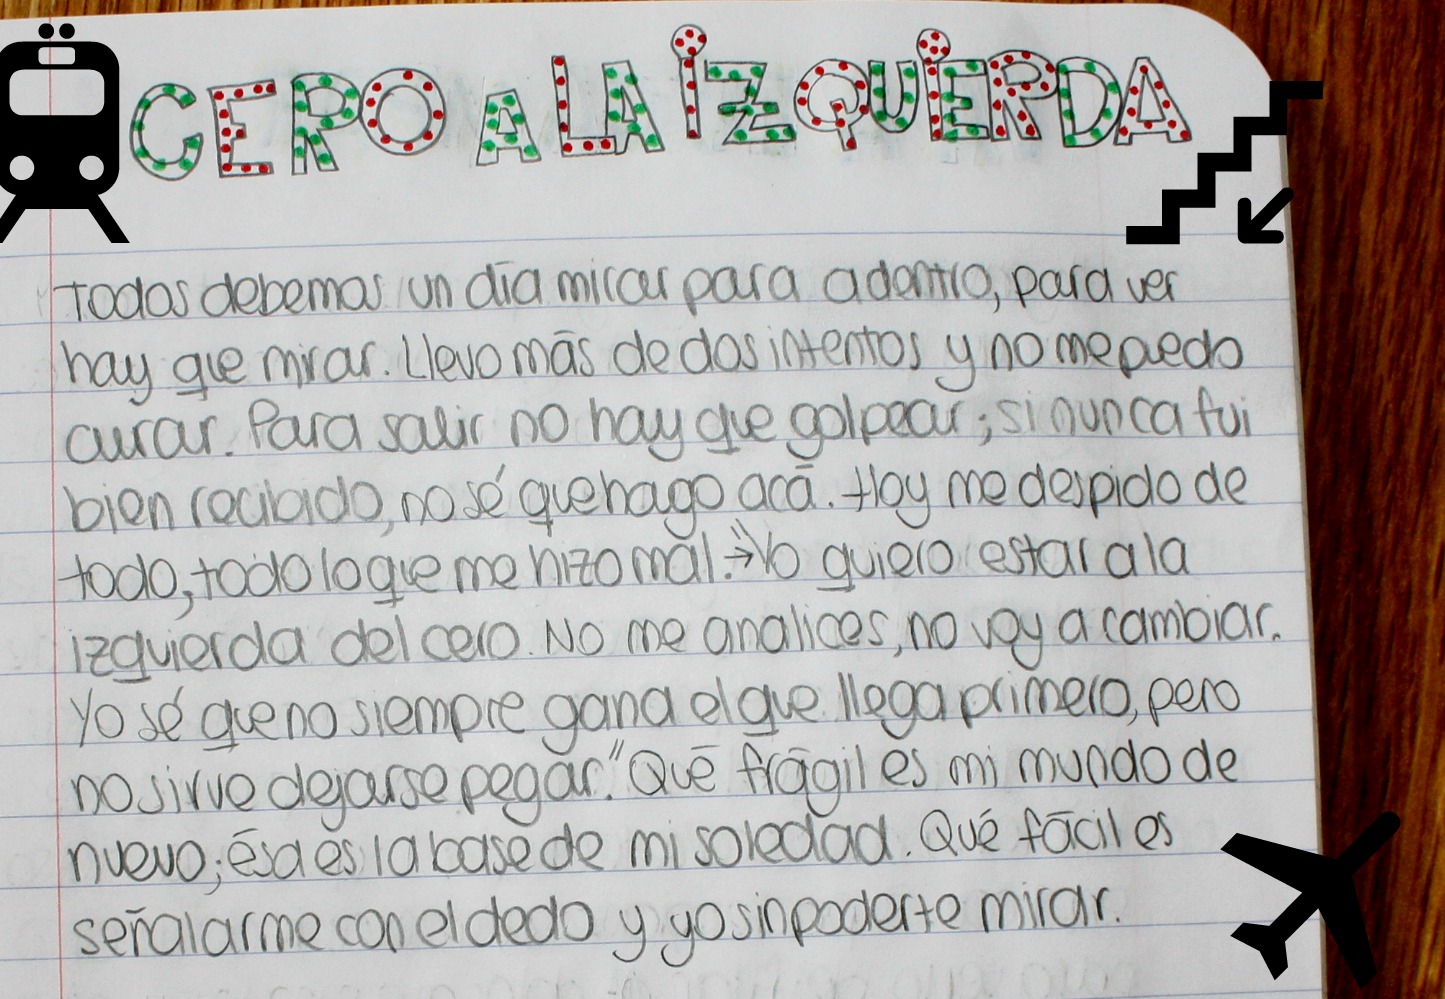 CERO A LA IZQUIERDA
Todos debemos un día mirar para adentro, para ver
hay que mirar. Llevo más de dos intentos y no me puedo
curar. Para salir no hay que golpear; si nunca fui
bien recibido, no sé que hago acá. Hoy me despido de
todo, todo lo que me hizo mal. → "Yo quiero estar a la
izquierda del cero. No me analices, no voy a cambiar.
Yo sé que no siempre gana el que llega primero, pero
no sirve dejarse pegar." Qué frágil es mi mundo de
nuevo; ésa es la base de mi soledad. Qué fácil es
señalarme con el dedo y yo sin poderte mirar.